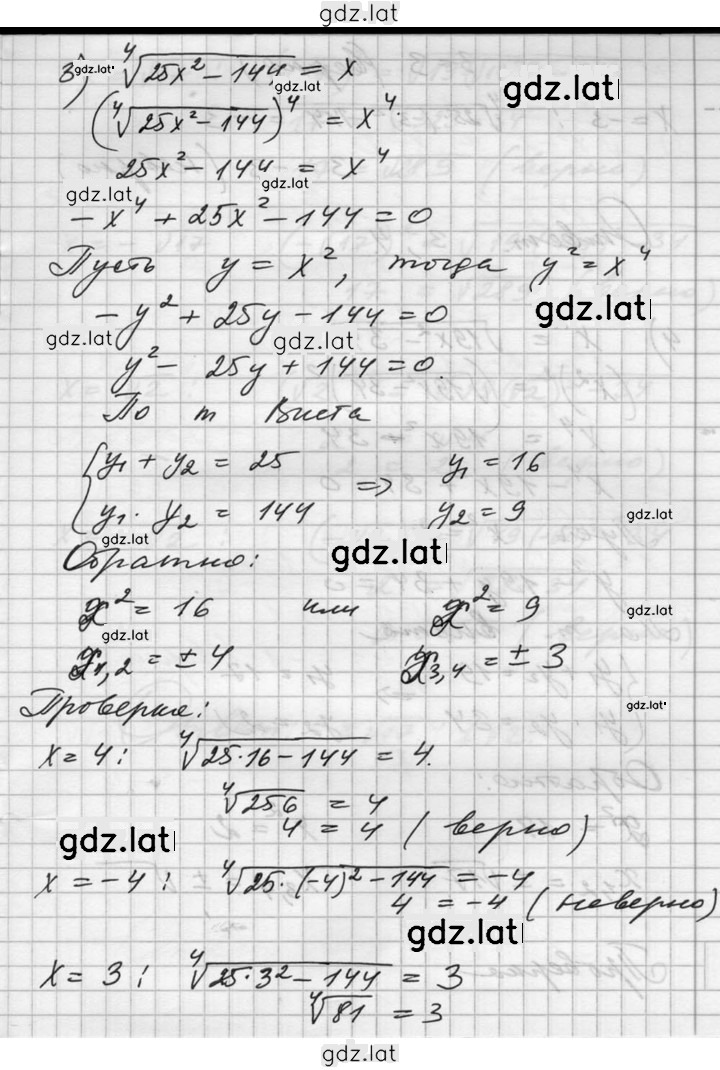 gdz.lat
3) ⁴√(25x² − 144) = x
(⁴√(25x² − 144))⁴ = x⁴.
25x² − 144 = x⁴
− x⁴ + 25x² − 144 = 0
Пусть y = x², тогда y² = x⁴
− y² + 25y − 144 = 0
y² − 25y + 144 = 0.
По т Виета
{ y₁ + y₂ = 25 => y₁ = 16
y₁ · y₂ = 144 y₂ = 9
Обратно:
x² = 16 или x² = 9
x₁,₂ = ± 4 x₃,₄ = ± 3
Проверка:
x = 4 : ⁴√(25·16 − 144) = 4.
⁴√256 = 4
4 = 4 (верно)
x = −4 : ⁴√(25·(−4)² − 144) = −4
4 = −4 (неверно)
x = 3 : ⁴√(25·3² − 144) = 3
⁴√81 = 3
gdz.lat